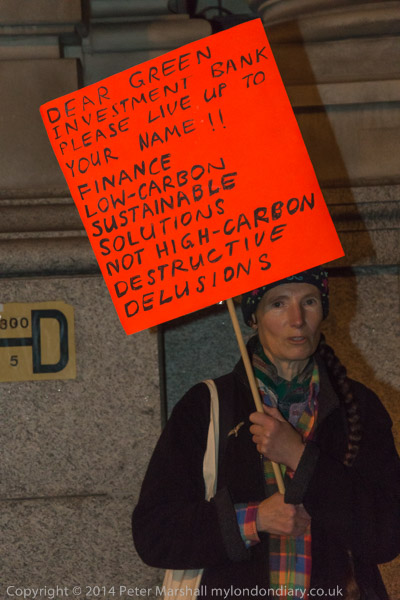 DEAR GREEN
INVESTMENT BANK
PLEASE LIVE UP TO
YOUR NAME!!
FINANCE
LOW-CARBON
SUSTAINABLE
SOLUTIONS
NOT HIGH-CARBON
DESTRUCTIVE
DELUSIONS
300
5
HD
Copyright © 2014 Peter Marshall mylondondiary.co.uk